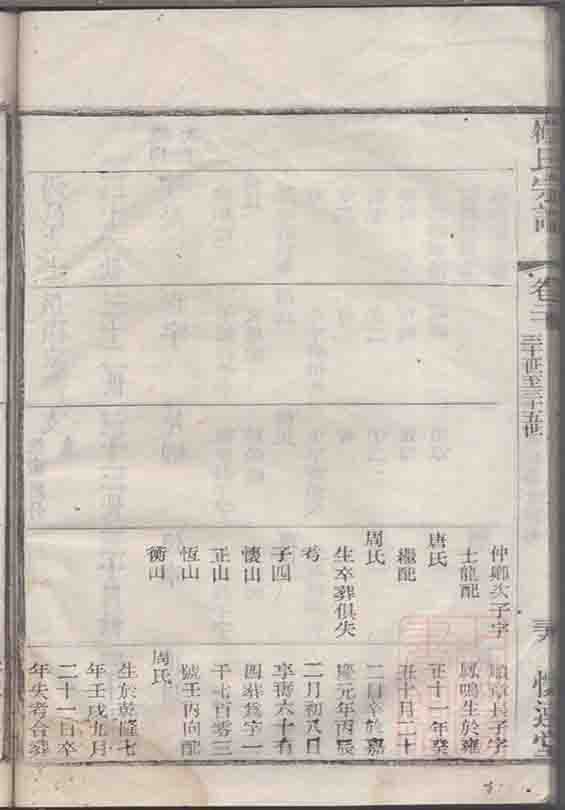 氏宗譜
卷二
三十世至三十五世
仲卿次子字
士龍配
唐氏
繼配
周氏
生卒葬俱失
考
子四
懷山
正山
恆山
衡山
長子字
鳳鳴生於雍
正十一年癸
丑十月二十
二日卒於嘉
慶元年丙辰
二月初八日
享壽六十有
四葬為字一
千七百零三
號壬丙向配
周氏
生於乾隆七
年壬戌九月
二十一日卒
年失考合葬